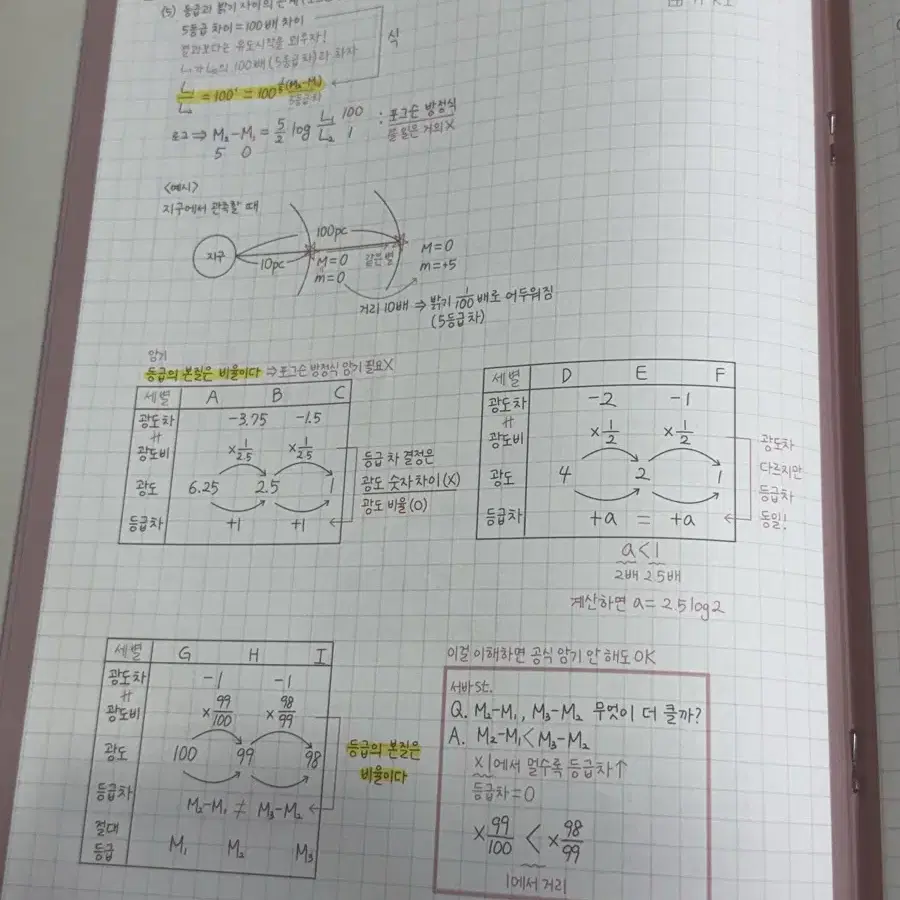 (5) 등급과 밝기 사이의 관계
5등급 차이 = 100배 차이
결과보다는 유도시작을 외우자!
L₁가 L₂의 100배 (5등급차)라 하자
식
L₁/L₂ = 100¹ = 100^(1/5(M₂-M₁))
5등급차
로그 ⇒ M₂-M₁ = 5/2 log L₁/L₂ 100/1 : 포그슨 방정식
5 0 물월은 거의 X
<예시>
지구에서 관측할 때
100pc
지구 10pc M=0 같은별 M=0
m=0 m=+5
거리 10배 ⇒ 밝기 1/100 배로 어두워짐
(5등급차)
암기
등급의 본질은 비율이다 ⇒ 포그슨 방정식 암기 필요X
세별 A B C
광도차 -3.75 -1.5
광도비 ×1/2.5 ×1/2.5
광도 6.25 2.5 1
등급차 +1 +1
등급 차 결정은
광도 숫자 차이 (X)
광도 비율 (O)
세별 D E F
광도차 -2 -1
광도비 ×1/2 ×1/2
광도 4 2 1
등급차 +a = +a
광도차
다르지만
등급차
동일!
a < 1
2배 2.5배
계산하면 a = 2.5log2
세별 G H I
광도차 -1 -1
광도비 ×99/100 ×98/99
광도 100 99 98
등급차 M₂-M₁ ≠ M₃-M₂
절대
등급 M₁ M₂ M₃
등급의 본질은
비율이다
이걸 이해하면 공식 암기 안 해도 OK
서바 St.
Q. M₂-M₁, M₃-M₂ 무엇이 더 클까?
A. M₂-M₁ < M₃-M₂
×1에서 멀수록 등급차↑
등급차=0
×99/100 < ×98/99
1에서 거리